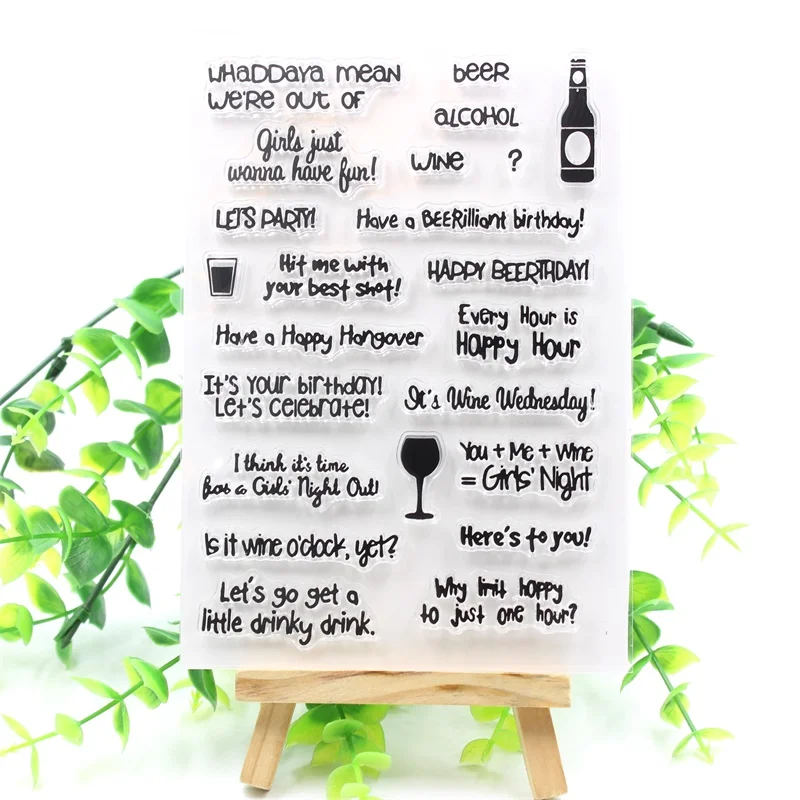 WHADDAYA MEAN
WE'RE OUT OF
BEER
ALCOHOL
WINE
?
Girls just
wanna have fun!
LET'S PARTY!
Have a BEERilliant birthday!
Hit me with
your best shot!
HAPPY BEERTHDAY!
Have a Happy Hangover
Every Hour is
Happy Hour
It's Your birthday!
Let's celebrate!
It's Wine Wednesday!
I think it's time
for a Girls' Night Out!
You + Me + Wine
= Girls' Night
Is it wine o'clock, yet?
Here's to you!
Let's go get a
little drinky drink.
Why limit happy
to just one hour?